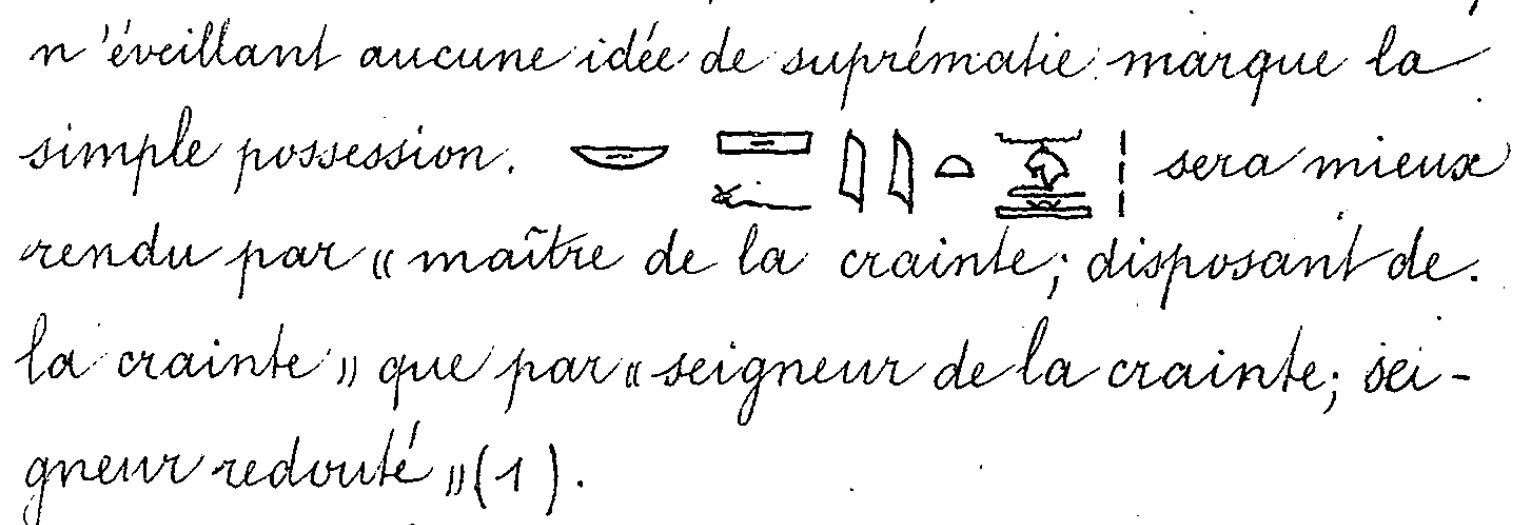 n'éveillant aucune idée de suprématie marque la
simple possession. sera mieux
rendu par « maître de la crainte; disposant de
la crainte » que par « seigneur de la crainte; sei-
gneur redouté » (1).